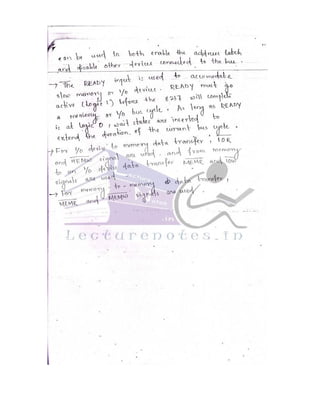 can be used to both enable the address latch
and disable other devices connected to the bus.
→ The READY input is used to accomodate
slow memory or I/o devices. READY must go
active (logic 1) before the 8237 will complete
a memory or I/o bus cycle. As long as READY
is at logic 0, wait states are inserted to
extend the duration of the current bus cycle.
→ For I/o device to memory data transfer, IOR
and MEMW signal are used and from memory
to an I/o device data transfer MEMR and IOW
signals are used.
→ For memory to memory data transfer
MEMR and MEMW signals are used.
Lecturenotes.in